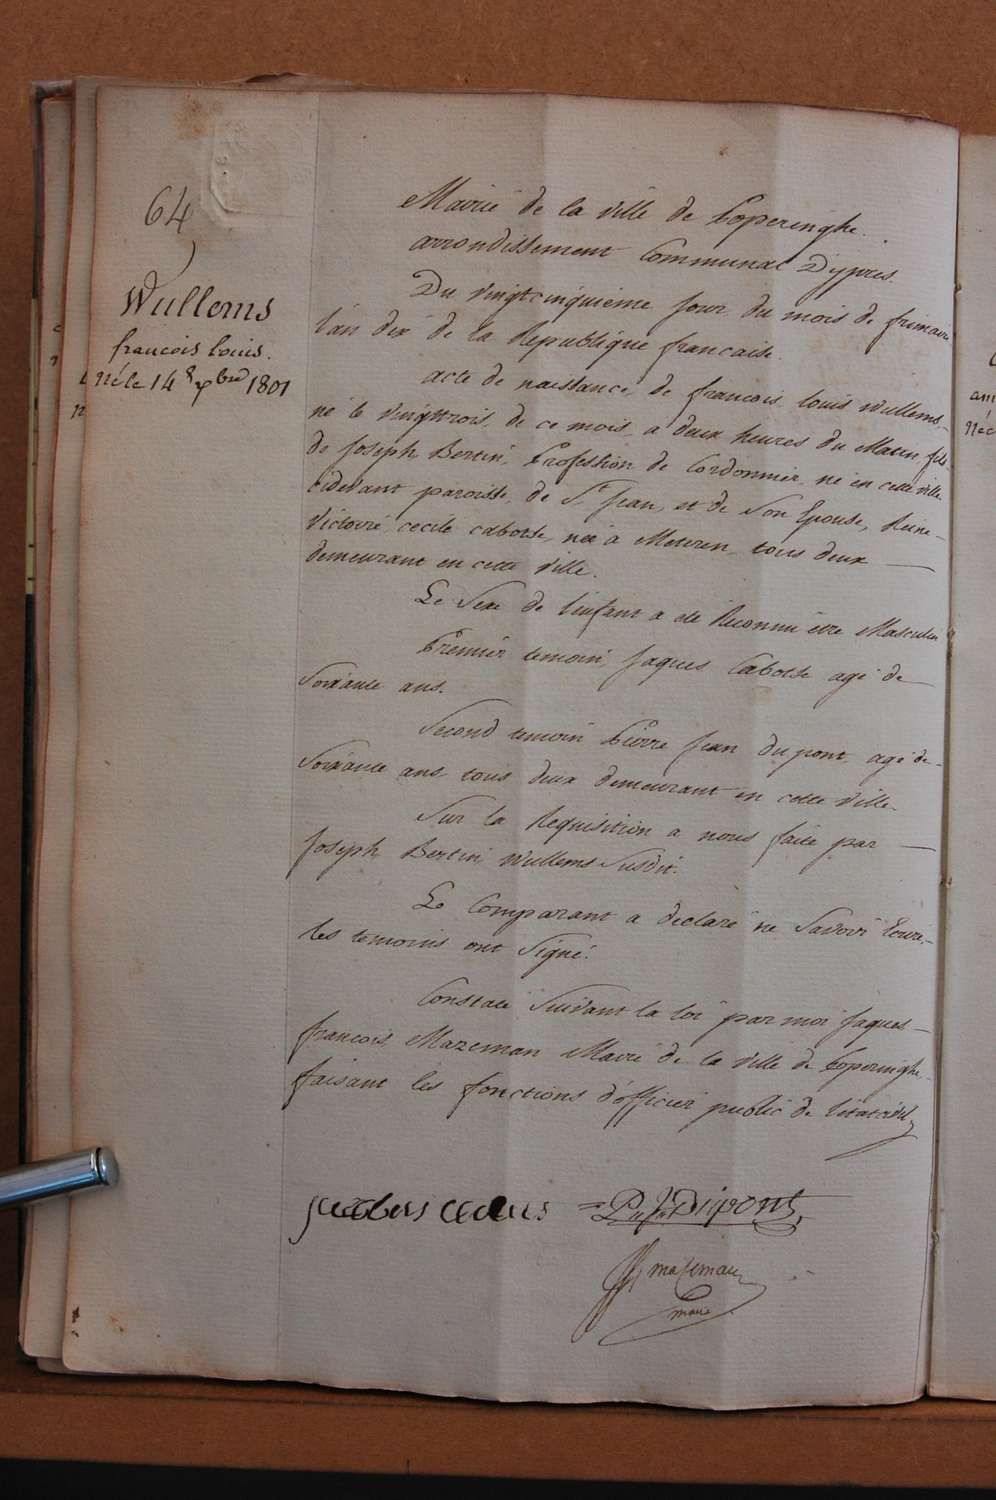 64
Wullems
francois louis.
né le 14 Xbre 1801
Mairie de la ville de Poperinghe.
arrondissement Communal D'ypres.
Du vingtcinquieme jour du mois de frimaire
l'an dix de la Republique francaise.
acte de naissance, de francois louis wullems,
né le vingttrois, de ce mois, a deux heures du Matin, fils
de Joseph Bertin, Profession de Cordonnier, né en cette ville
cidevant paroisse, de St. Jean, et de Son Epouse, Reine-
Victoire, cecile cabotse, née à Meteren, tous deux —
demeurant en cette ville.
Le Sexe de l'enfant a été Reconnu être Masculin
Premier temoin, Jaques Cabotse agé de
Soixante ans.
Second temoin Pierre Jean Dupont, agé de-
Soixante ans, tous deux demeurant en cette ville.
Sur la Requisition a nous faite par —
Joseph Bertin Wullems Susdit.
Le Comparant a declaré ne Savoir Ecrire,-
les temoins ont Signé.
Constaté Suivant la loi par moi Jaques-
francois, Mazeman Maire de la ville de Poperinghe-
faisant les fonctions d'officier public de l'état civil,
P: J: Dupont,
mazeman
maire